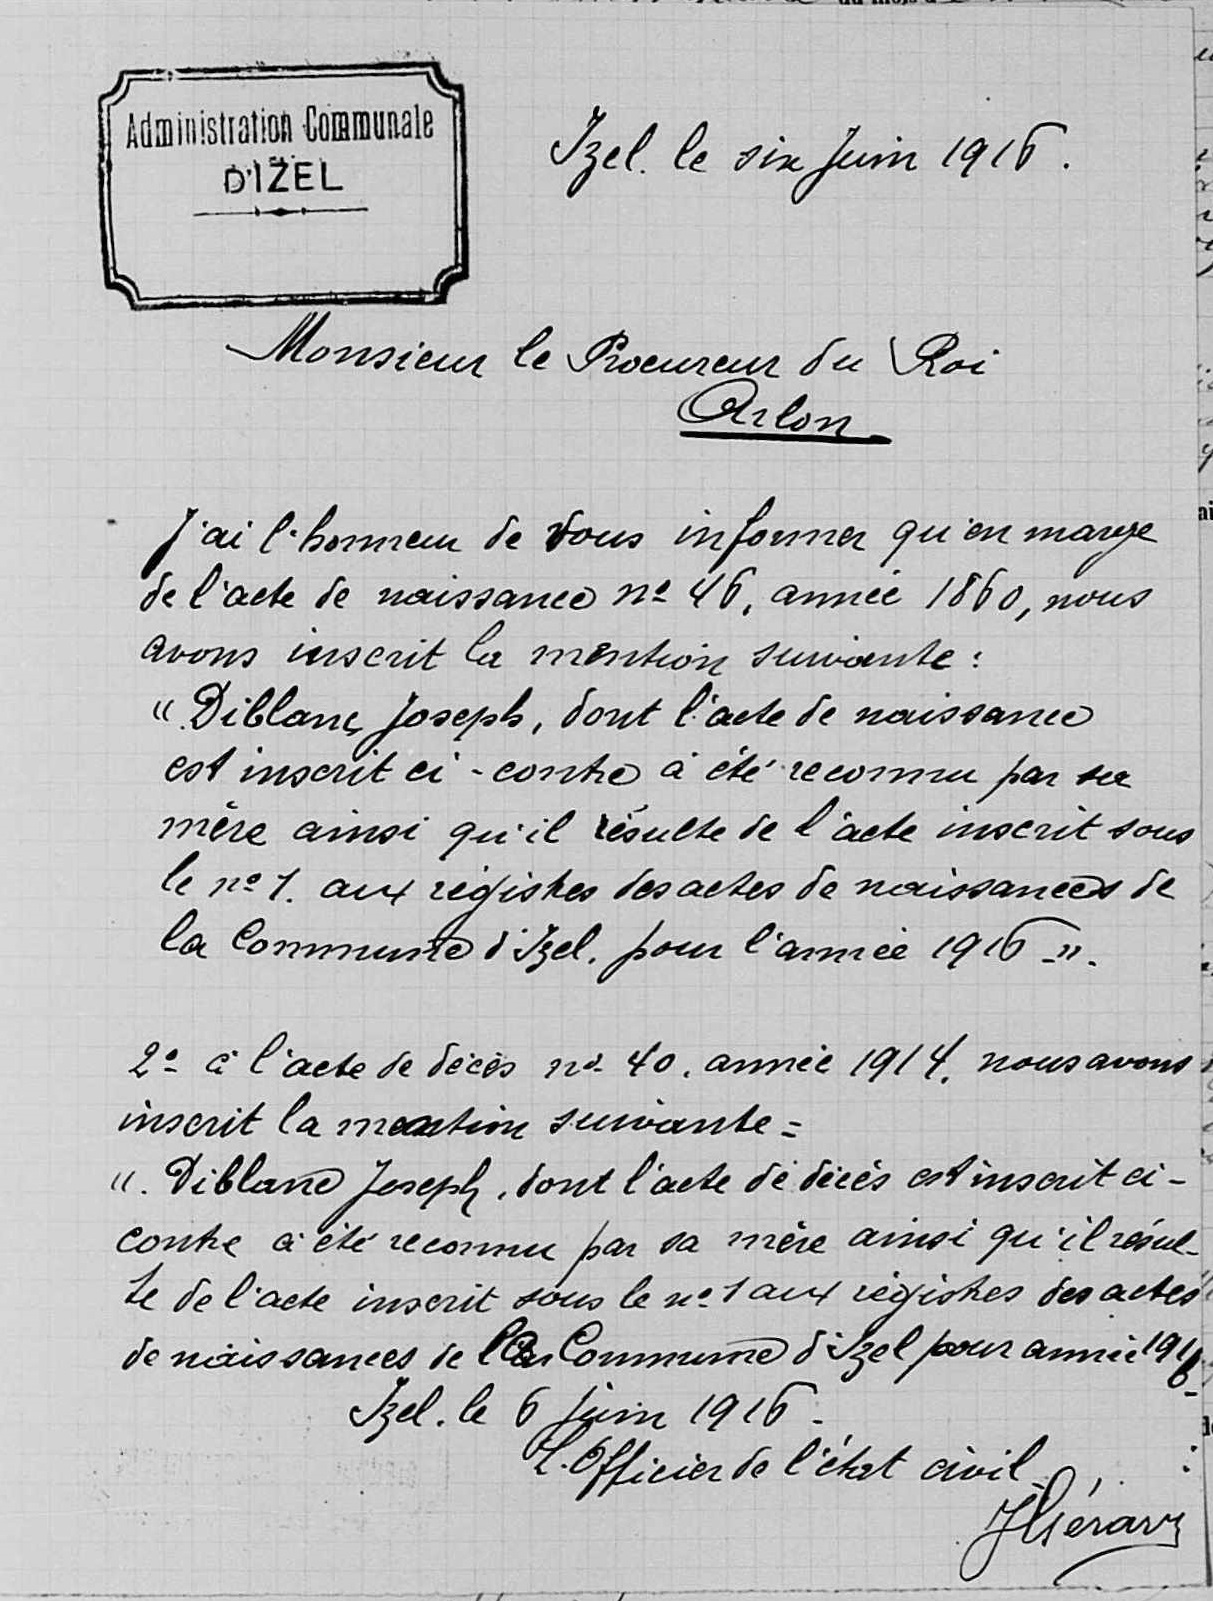 Administration Communale
D'IZEL
Izel. le six Juin 1916.
Monsieur le Procureur du Roi
Arlon
J'ai l'honneur de vous informer qu'en marge
de l'acte de naissance nº 46, année 1860, nous
avons inscrit la mention suivante :
" Diblanc Joseph, dont l'acte de naissance
est inscrit ci-contre a été reconnu par sa
mère ainsi qu'il résulte de l'acte inscrit sous
le nº 1. aux régistres des actes de naissances de
la Commune d'Izel. pour l'année 1916 -".
2º à l'acte de décès nº 40. année 1914. nous avons
inscrit la mention suivante =
". Diblanc Joseph, dont l'acte de décès est inscrit ci-
contre a été reconnu par sa mère ainsi qu'il résul-
te de l'acte inscrit sous le nº 1 aux régistres des actes
de naissances de la Commune d'Izel pour année 1916-
Izel. le 6 juin 1916.
L'Officier de l'état civil